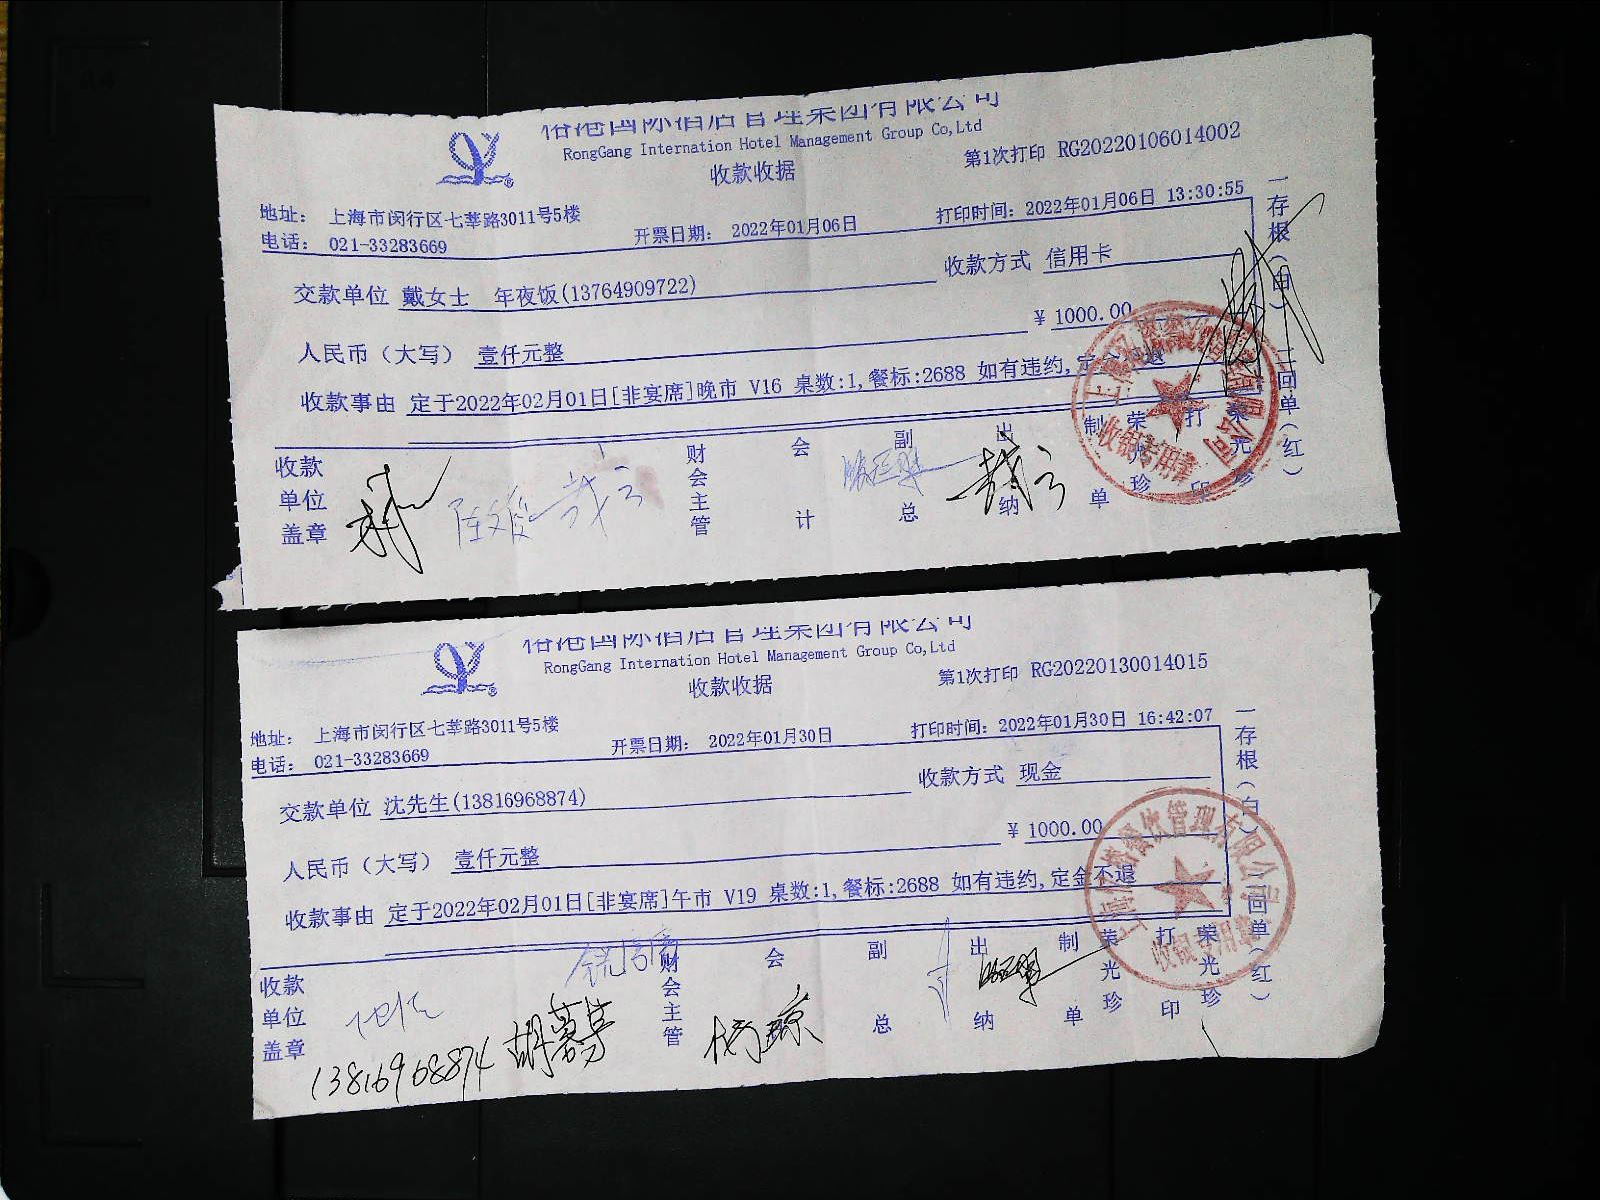 国际酒店管理集团有限公司
RongGang Internation Hotel Management Group Co,Ltd
收款收据
第1次打印 RG20220106014002
地址： 上海市闵行区七莘路3011号5楼
电话： 021-33283669
开票日期： 2022年01月06日
打印时间：2022年01月06日 13:30:55
交款单位 戴女士 年夜饭(13764909722)
收款方式 信用卡
人民币（大写） 壹仟元整
¥ 1000.00
收款事由 定于2022年02月01日[非宴席]晚市 V16 桌数:1,餐标:2688 如有违约,定金不退
收款单位盖章
财会主管
会计
副总
出纳
制单
荣光珍
打印
荣光珍
一存根（白）二回单（红）
收银专用章
国际酒店管理集团有限公司
RongGang Internation Hotel Management Group Co,Ltd
收款收据
第1次打印 RG20220130014015
地址： 上海市闵行区七莘路3011号5楼
电话： 021-33283669
开票日期： 2022年01月30日
打印时间：2022年01月30日 16:42:07
交款单位 沈先生(13816968874)
收款方式 现金
人民币（大写） 壹仟元整
¥ 1000.00
收款事由 定于2022年02月01日[非宴席]午市 V19 桌数:1,餐标:2688 如有违约,定金不退
收款单位盖章
财会主管
会
副总
出纳
制单
荣光珍
打印
荣光珍
一存根（白）二回单（红）
餐饮管理有限公司
收银专用章
13816968874